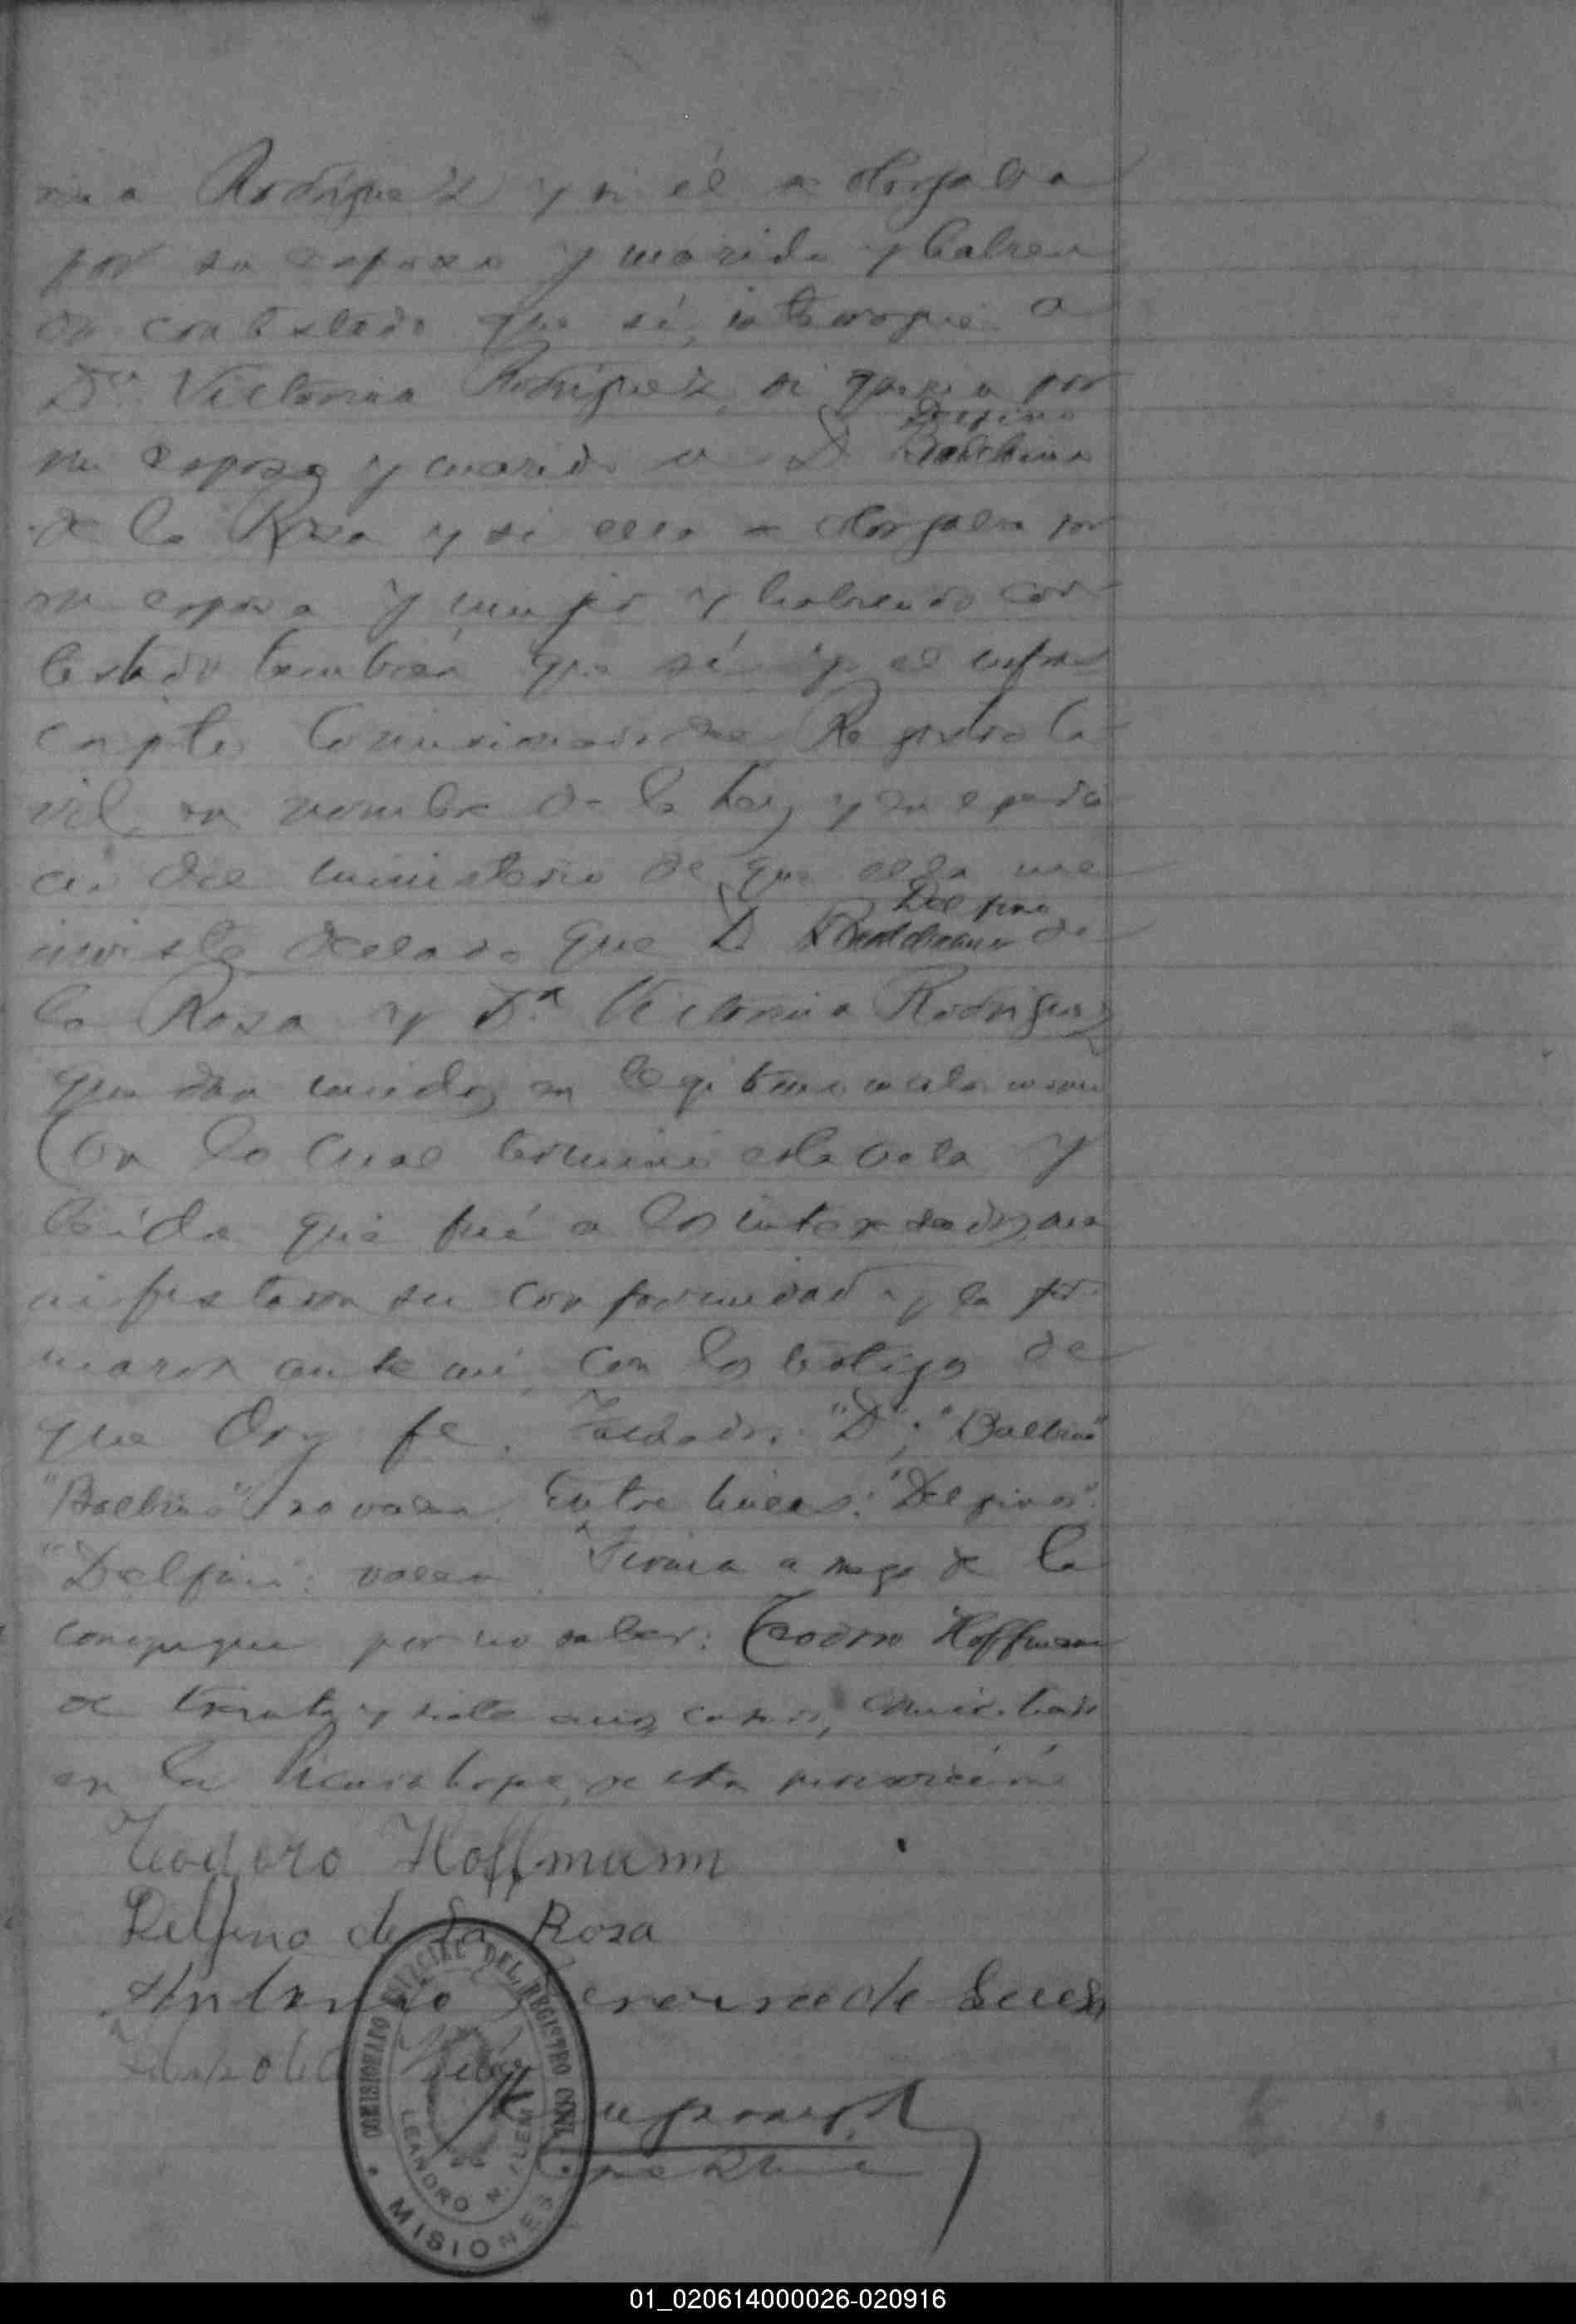 ria Rodríguez y si él se otorgaba
por su esposo y marido y habien
do contestado que sí, interrogué a
Dª Victoria Rodríguez, si quería por
Delfino
su esposo y marido a D
de la Rosa y si ella se otorgaba por
su esposa y mujer y habiendo con
testado también que sí yo el infras
cripto Comisionado del Registro Ci
vil en nombre de la Ley y en ejerci
cio del ministerio de que ella me
Delfino
inviste declaro que D de
la Rosa y Dª Victoria Rodríguez
quedan unidos en legítimo matrimonio
Con lo cual terminó esta acta y
leída que fué a los interesados, ma
nifestaron su conformidad y la fir
maron ante mí, con los testigos de
que doy fe. Testado: "D"; "Balbino"
"Balbino" no valen. Entre líneas: "Delfino".
"Delfino": valen. Firma a ruego de la
contrayente por no saber: Teodoro Hoffmann
de treinta y siete años, casado, domiciliado
en la Picada de esta jurisdicción
Teodoro Hoffmann
Delfino de la Rosa
Antonio de
COMISIONADO DEL REGISTRO CIVIL
LEANDRO N. ALEM
MISIONES
01_020614000026-020916